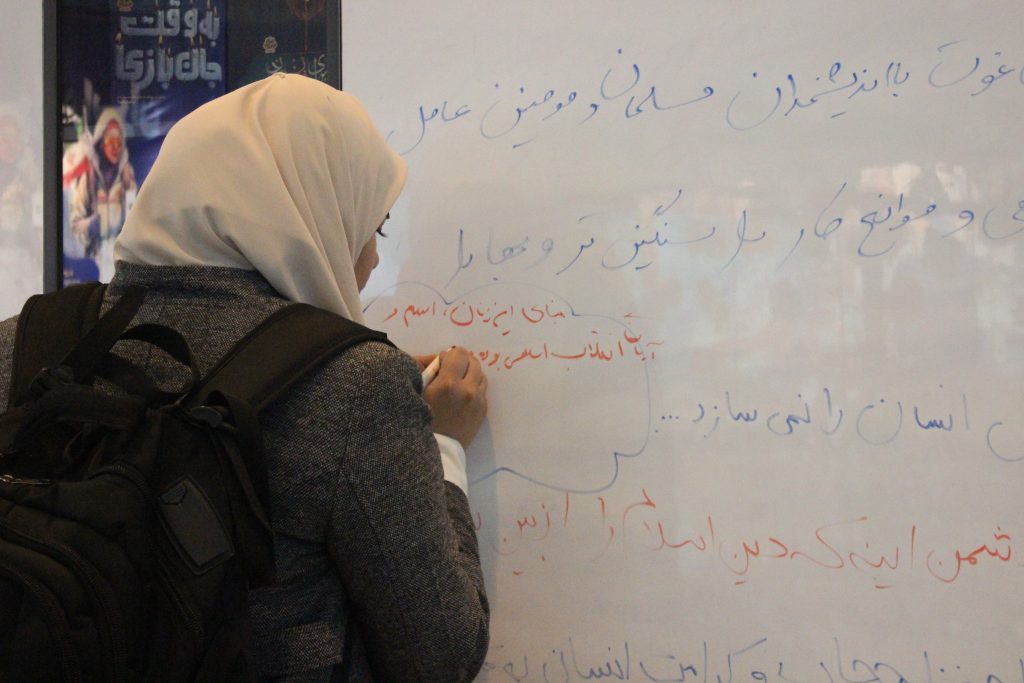 به وقت
جان بازی
با اندیشمندان مسلمان و مومنین عامل
و موانع کار را سنگین تر و بها را
مبنای این زنان، اسم و
آرمان انقلاب اسلامی بوده
انسان را نمی سازد...
اینه که دین اسلام را از بین
حجاب و کرامت انسان